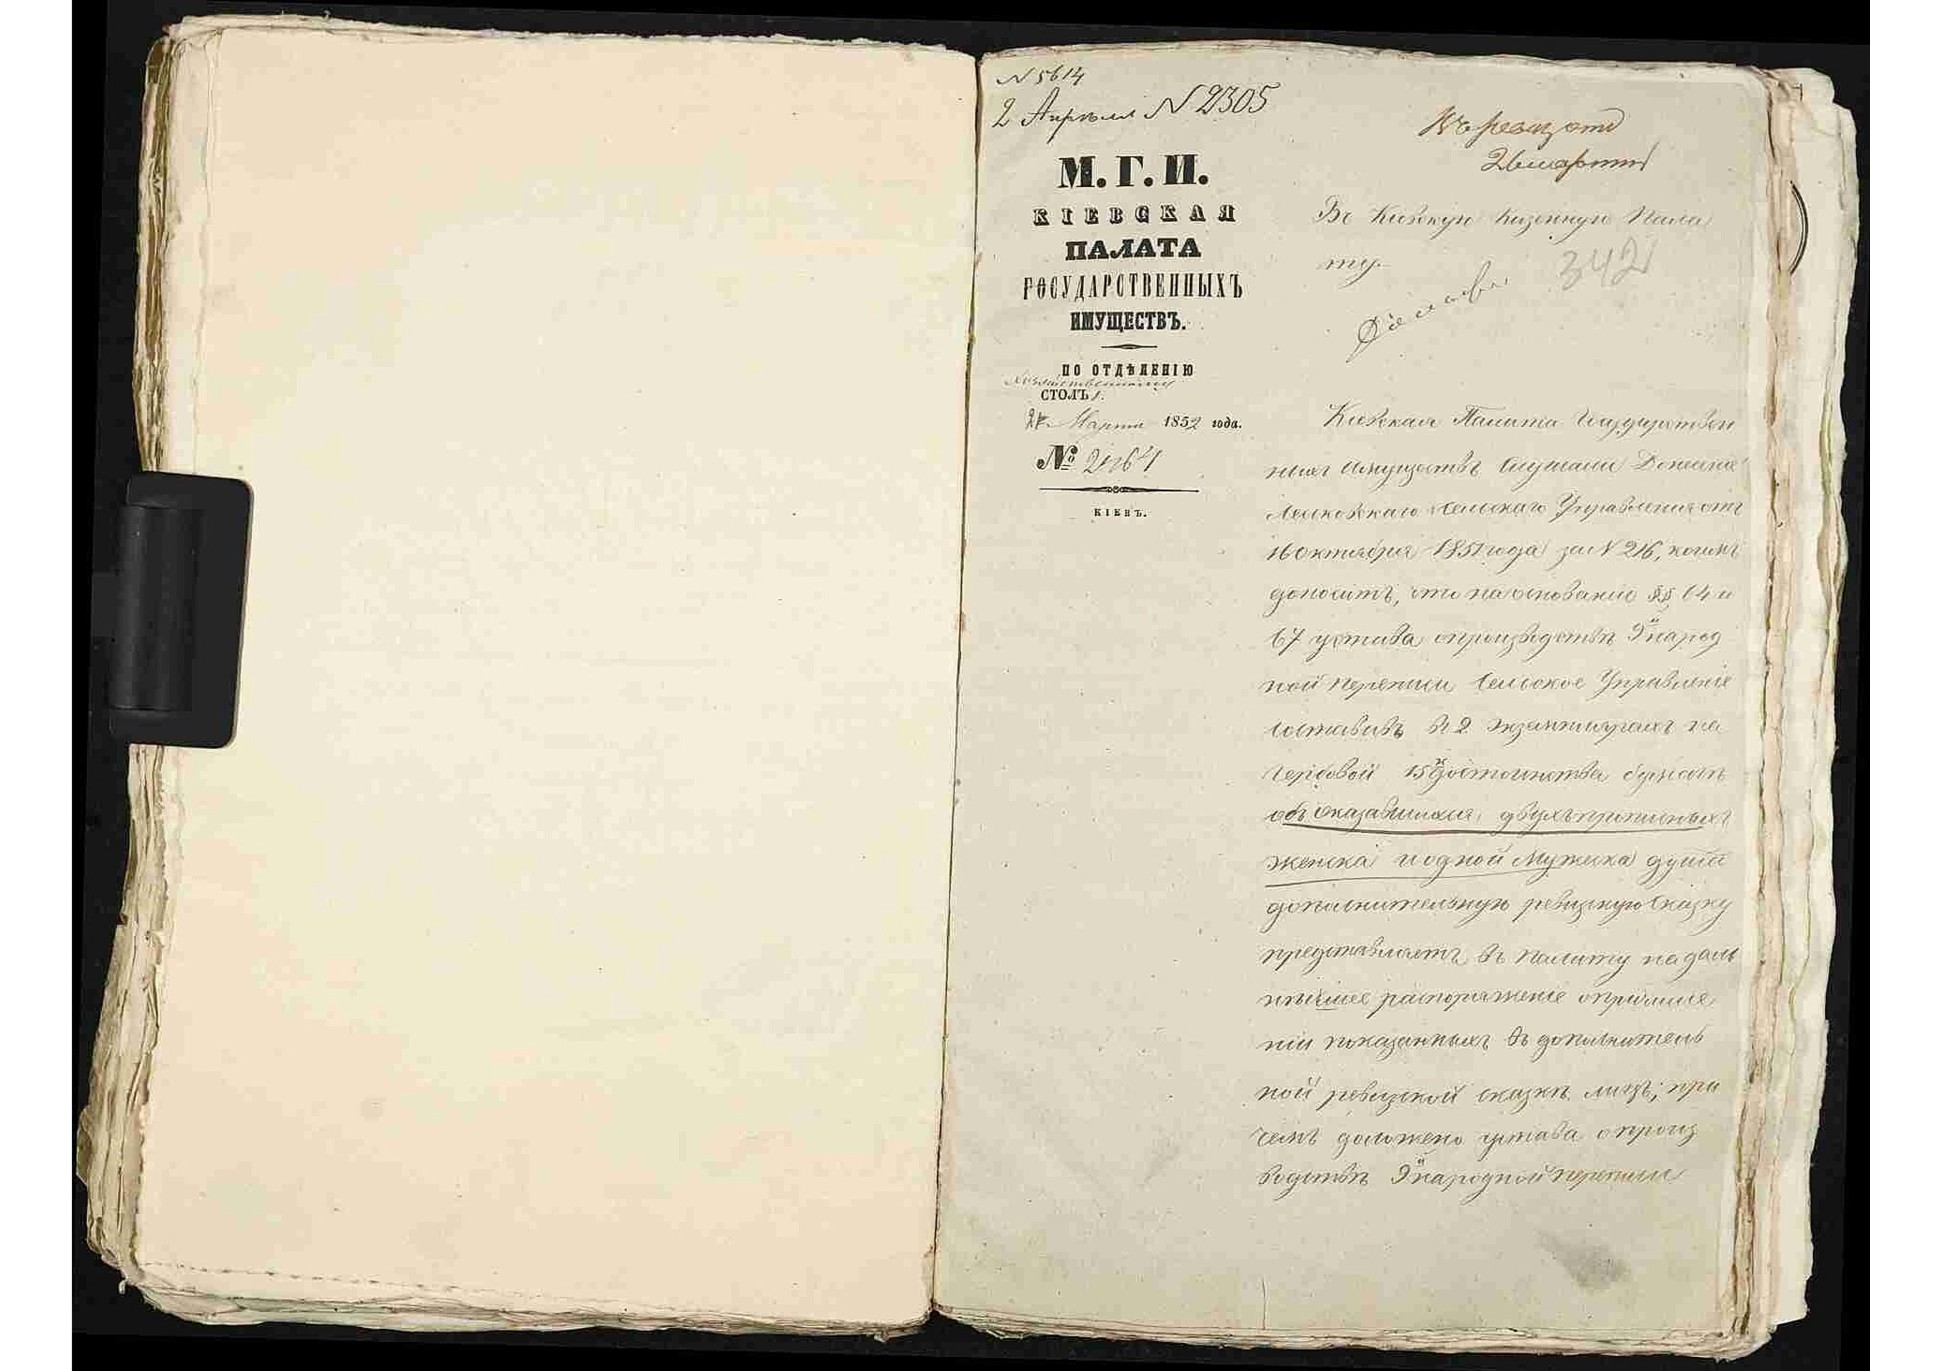 N 5614
2 Апреля N 2305
М. Г. И.
КІЕВСКАЯ
ПАЛАТА
ГОСУДАРСТВЕННЫХЪ
ИМУЩЕСТВЪ.
ПО ОТДѢЛЕНІЮ
Хозяйственному
СТОЛЪ 1.
Марта 1852 года.
№
КІЕВЪ.
Марта
Въ Кіевскую Казенную Пала
ту.
342
Кіевская Палата Государствен
ныхъ Имуществъ Слушали Донесеніе
Сельскаго Управленія отъ
16 Октября 1851 года за N 216, коимъ
доноситъ, что на основаніи §§ 64 и
67 устава о производствѣ 9й народ
ной переписи Сельское Управленіе
составивъ въ 2 экземплярахъ на
гербовой 15й достоинства бумагѣ
объ оказавшихся двухъ прописныхъ
женска и одной Мужеска душа
дополнительную ревизскую Сказку
представляетъ въ Палату на даль
нѣйшее распоряженіе о причисле
ніи показанныхъ въ дополнитель
ной ревизской сказкѣ лицъ; при
чемъ доложено устава о произ
водствѣ 9й народной переписи